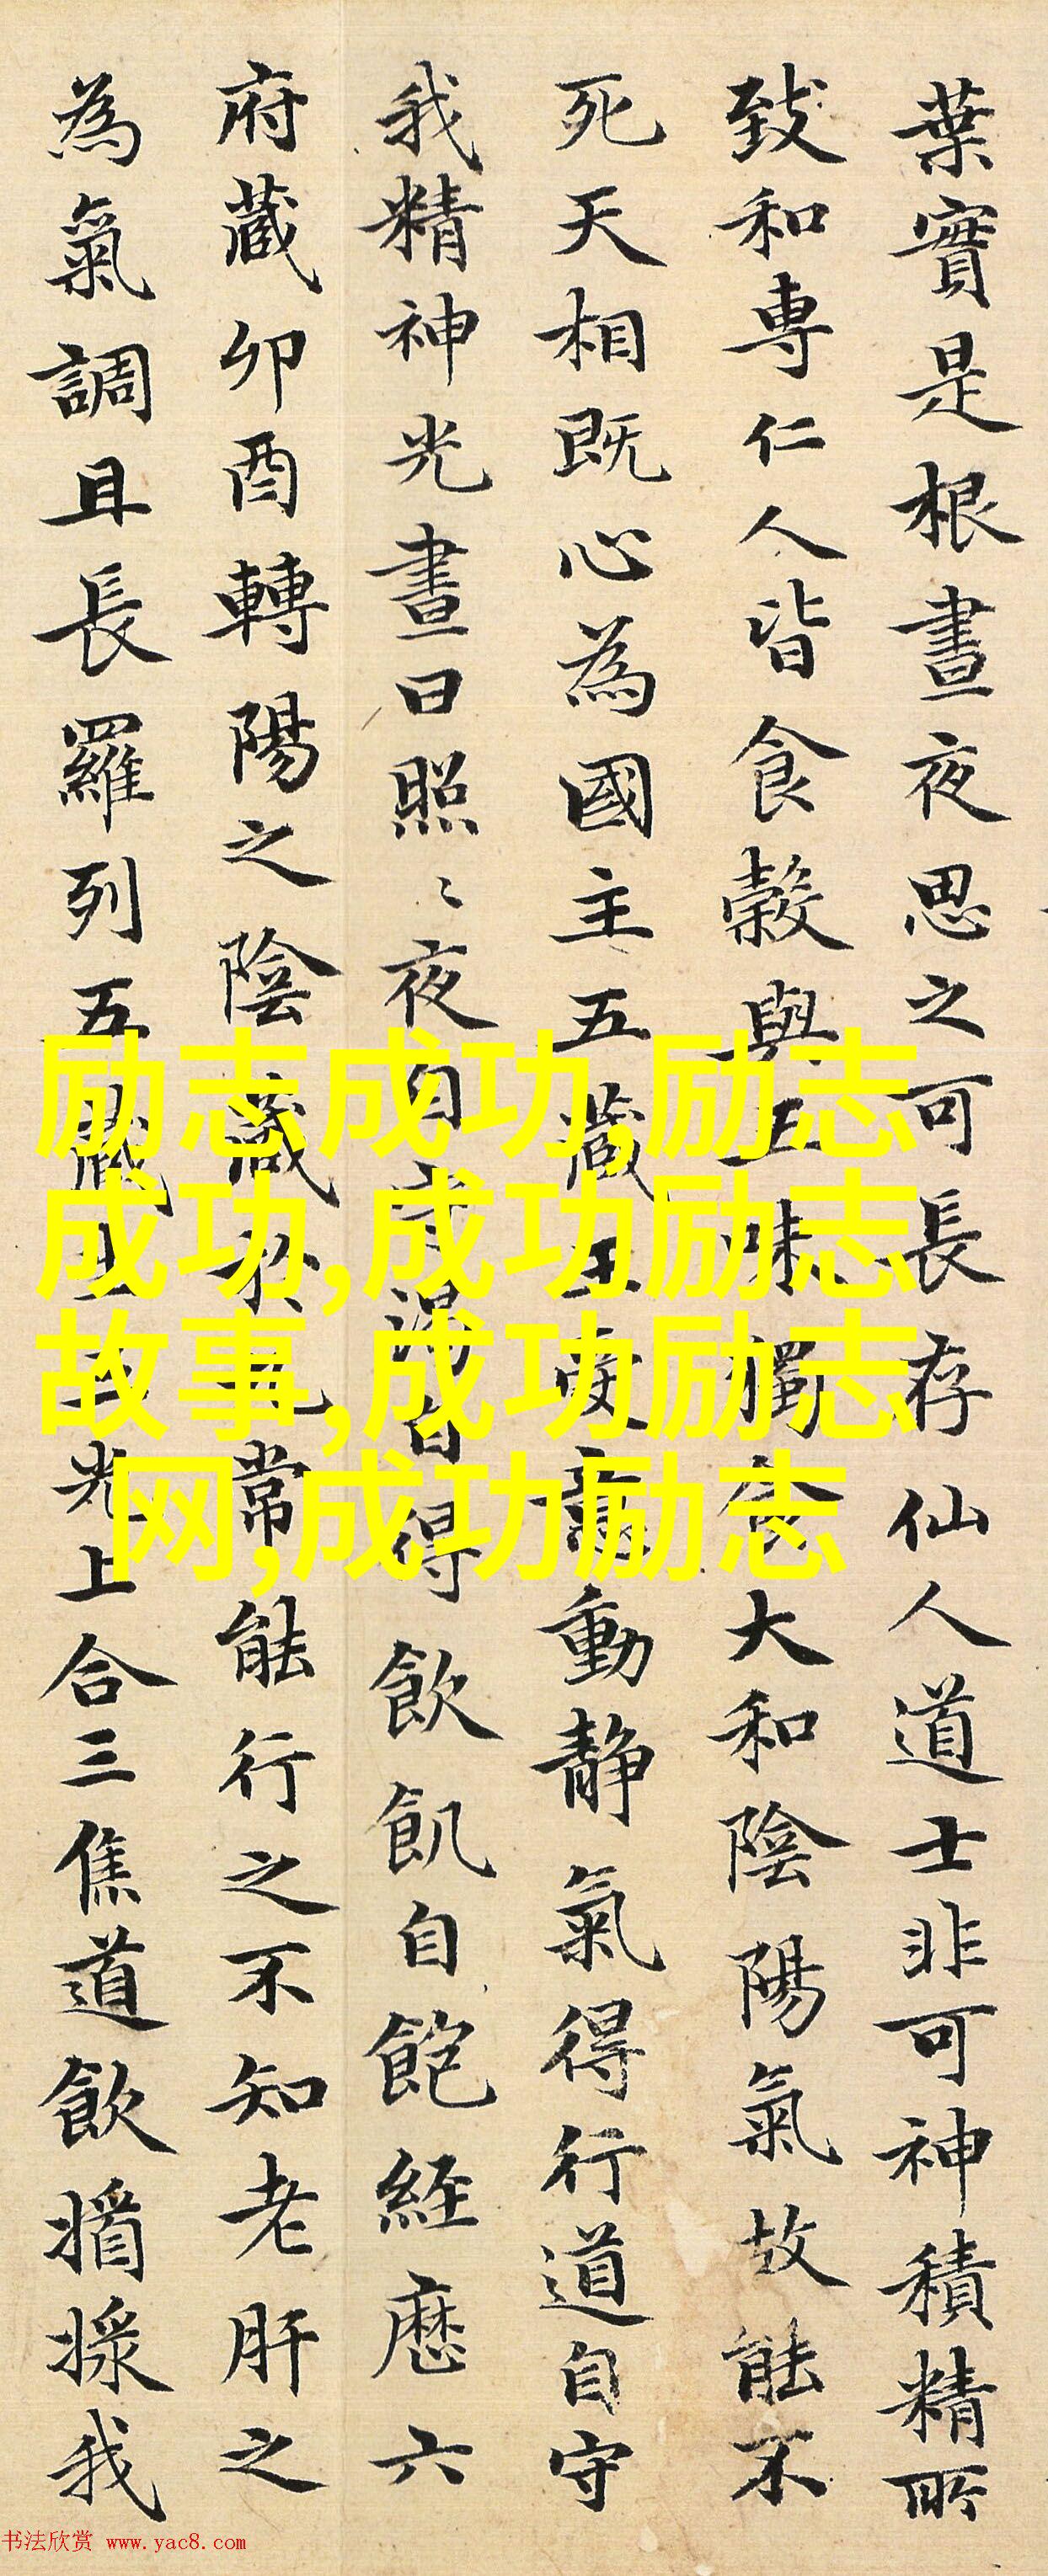 葉實是根晝夜思之可長存仙人道士非可神積精所
致和專仁人皆食穀與五味獨食大和陰陽氣故能不
死天相既心為國主五藏王受意動静氣得行道自守
我精神光晝日照〻夜自守渴自得飲飢自飽經歷六
府藏卯酉轉陽之陰藏於九常能行之不知老肝之
為氣調且長羅列五藏主三光上合三焦道飲搤掾我
励志成功,励志
成功,成功励志
故事,成功励志
网,成功励志
书法欣赏 www.yac8.com